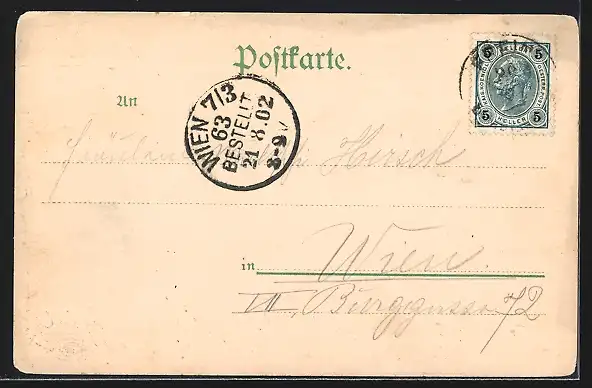 Postkarte.
An
WIEN 7/3
63
BESTELLT
21 8.02
8-9V
5 5
5 5
HELLER
Fräulein Hirsch
in Wien
VII, Burggasse 72